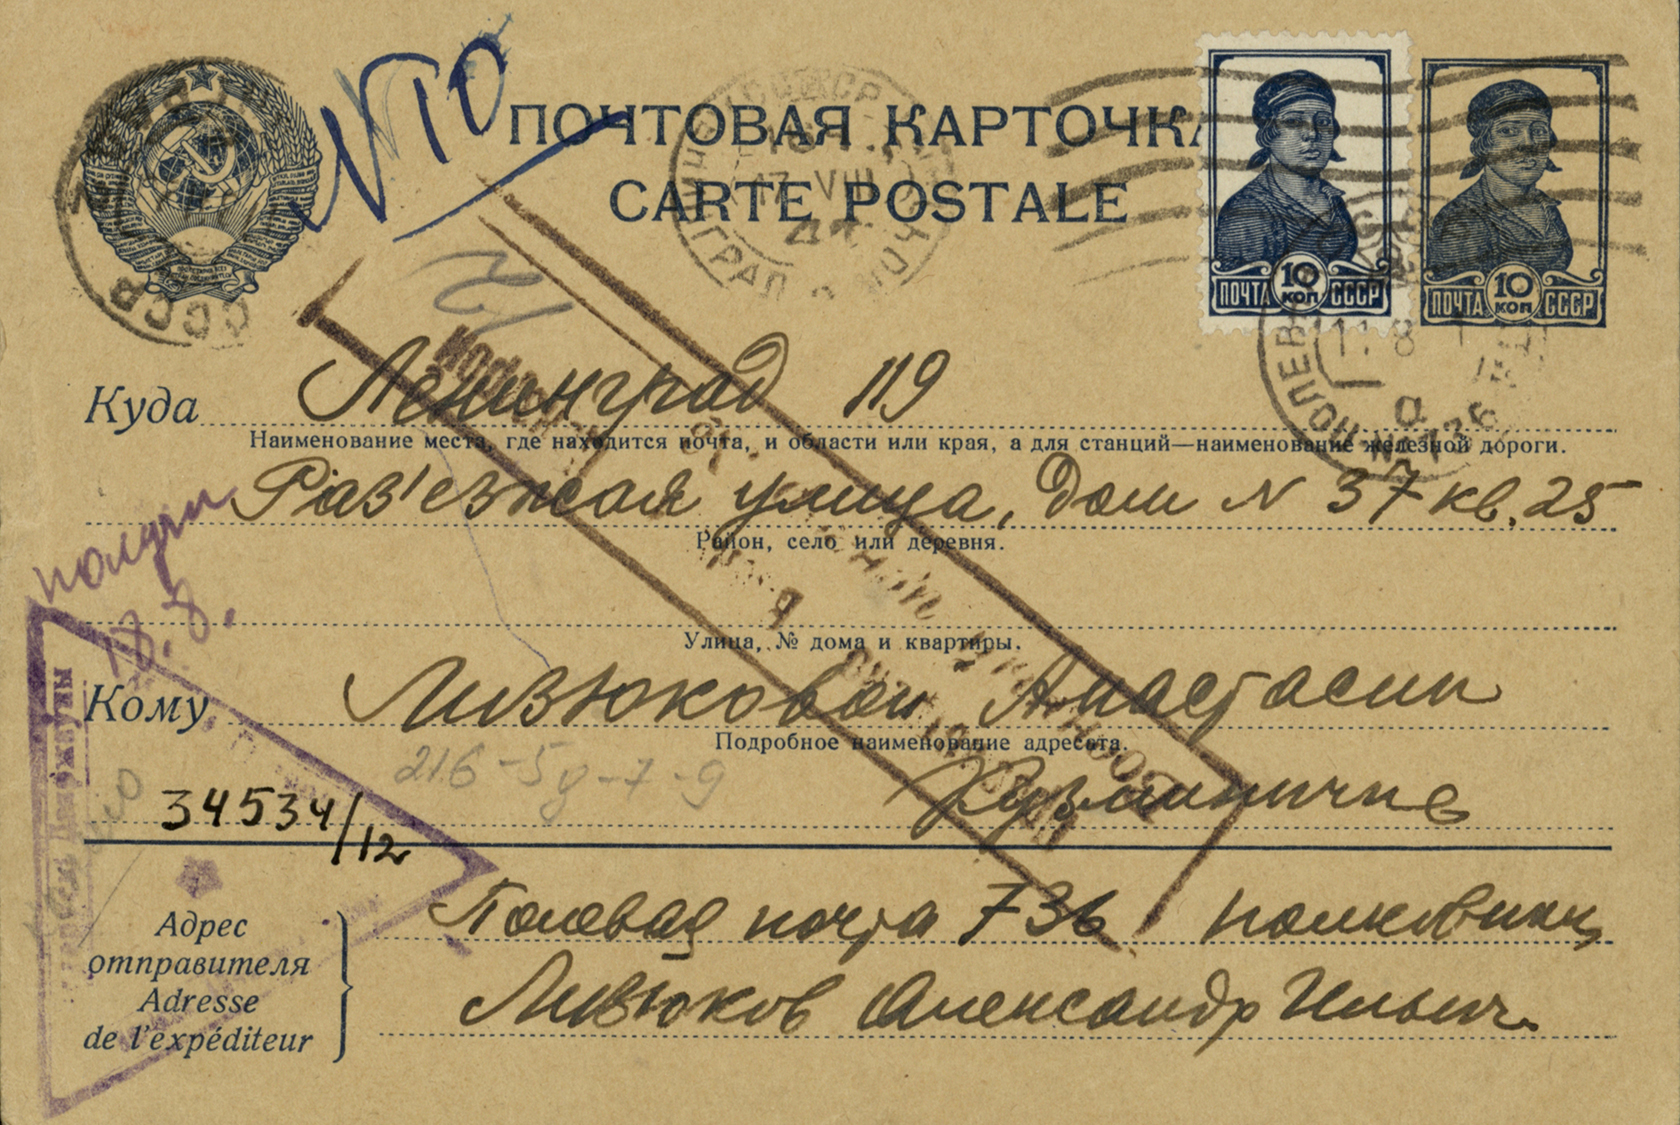 ПОЧТОВАЯ КАРТОЧКА
CARTE POSTALE
№10
ПОЧТА 10 КОП СССР
ПОЧТА 10 КОП СССР
СССР
17 VIII
Куда Ленинград 119
Наименование места, где находится почта, и области или края, а для станций—наименование железной дороги.
Раз'езжая улица, Дом N 37 кв. 25
Район, село или деревня.
получ
18.8.
Улица, № дома и квартиры.
Кому Лизюковой Анастасии
Подробное наименование адресата.
216-5д-7-9
Кузминичне
34534/12
Адрес отправителя
Adresse de l'expéditeur
Полевая почта 736 полковник
Лизюков Александр Ильич.